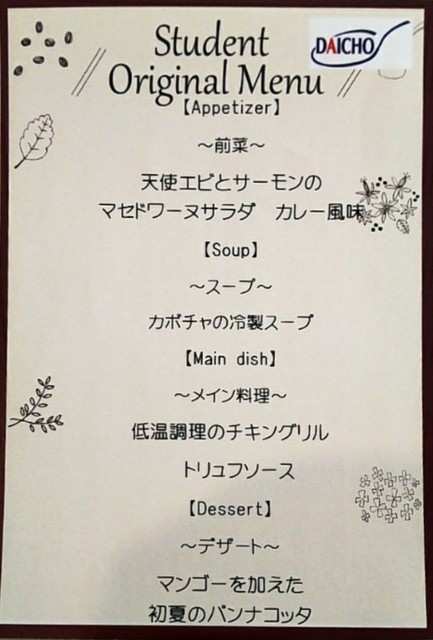 DAICHO
Student
Original Menu
【Appetizer】
～前菜～
天使エビとサーモンの
マセドワーヌサラダ　カレー風味
【Soup】
～スープ～
カボチャの冷製スープ
【Main dish】
～メイン料理～
低温調理のチキングリル
トリュフソース
【Dessert】
～デザート～
マンゴーを加えた
初夏のパンナコッタ